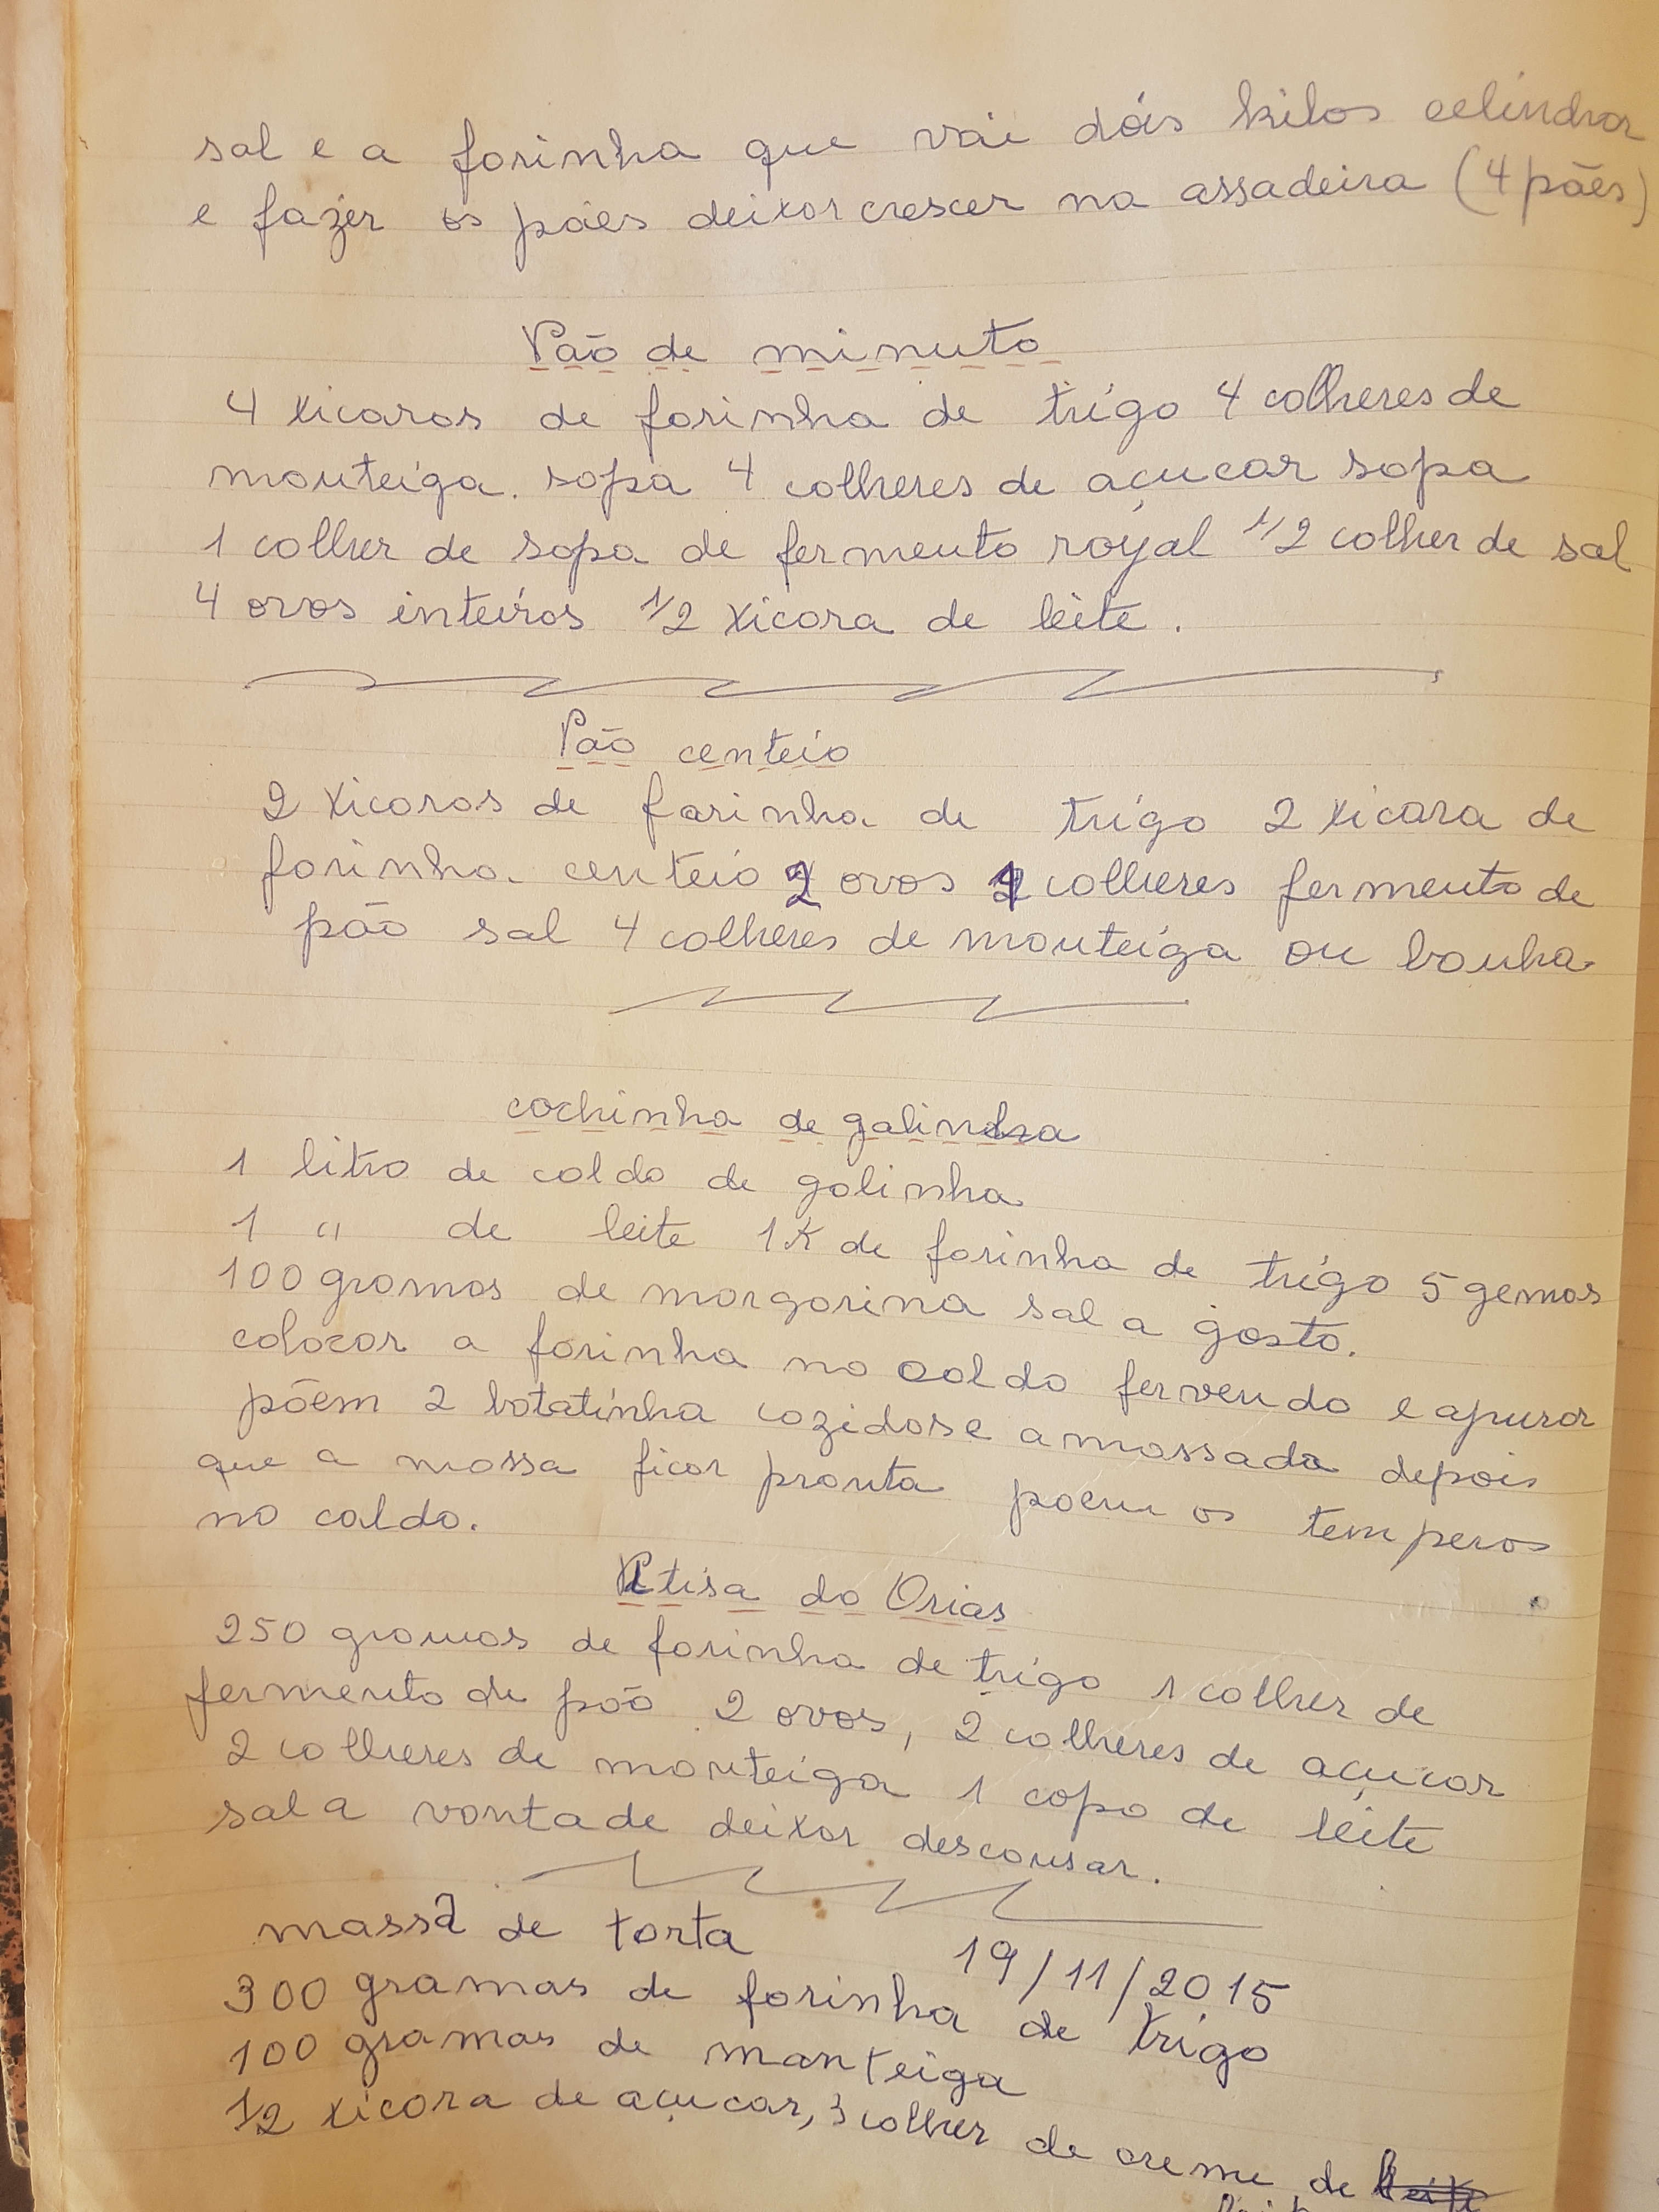 sal e a farinha que vai dois kilos celindrar
e fazer os pães deixar crescer na assadeira (4 pães)
Pão de minuto
4 xicaras de farinha de trigo 4 colheres de
manteiga. sopa 4 colheres de açucar sopa
1 colher de sopa de fermento royal 1/2 colher de sal
4 ovos inteiros 1/2 xicara de leite.
Pão centeio
2 xicaras de farinha de trigo 2 xicara de
farinha centeio 2 ovos 2 colheres fermento de
pão sal 4 colheres de manteiga ou banha
cochinha de galinha
1 litro de caldo de galinha
1 " de leite 1K de farinha de trigo 5 gemas
100 gramas de margarina sal a gosto.
colocar a farinha no caldo fervendo e apurar
põem 2 batatinha cozidas e amassada depois
que a massa ficar pronta poem os temperos
no caldo.
do Orias
250 gramas de farinha de trigo 1 colher de
fermento de pão 2 ovos, 2 colheres de açucar
2 colheres de manteiga 1 copo de leite
sal a vontade deixar descansar.
massa de torta
19/11/2015
300 gramas de farinha de trigo
100 gramas de manteiga
1/2 xicara de açucar, 3 colher de creme de